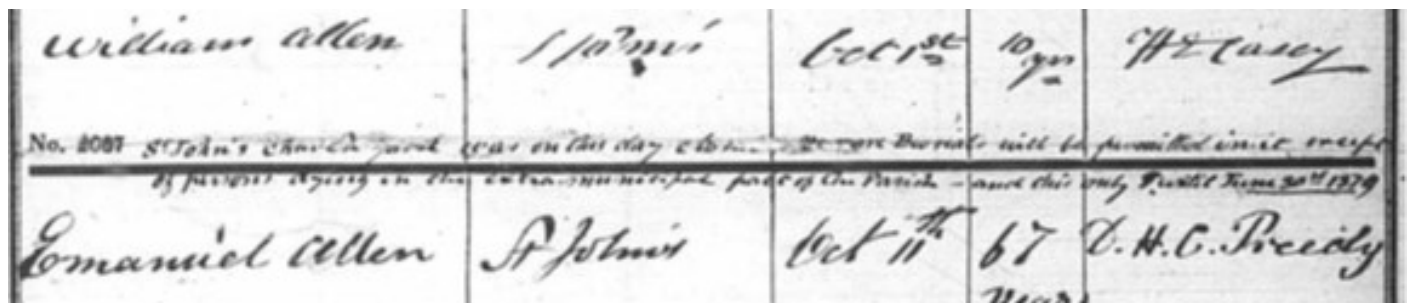 William Allen St John's Oct 1st 10 yrs H E Casey
No. 2087 St John's Church yard was on this day closed no more Burials will be permitted in it except
of persons dying in the extra-municipal part of the Parish - and this only until June 30th 1879
Emanuel Allen St John's Oct 11th 67 D. H. C. Preedy
Years